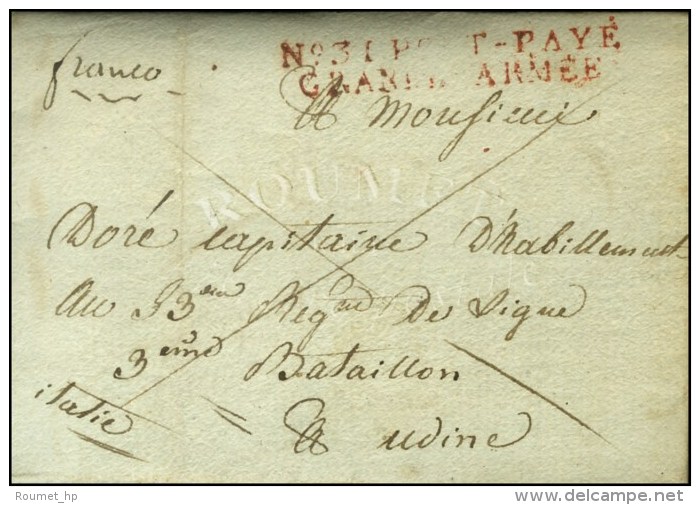 franco
No 31 PORT-PAYÉ
GRANDE ARMÉE
A Monsieur
ROUMET
Doré capitaine D'habillement
Au 53eme Regmt De Ligne
3eme Bataillon
italie
A udine
Roumet_hp
www.delcampe.net